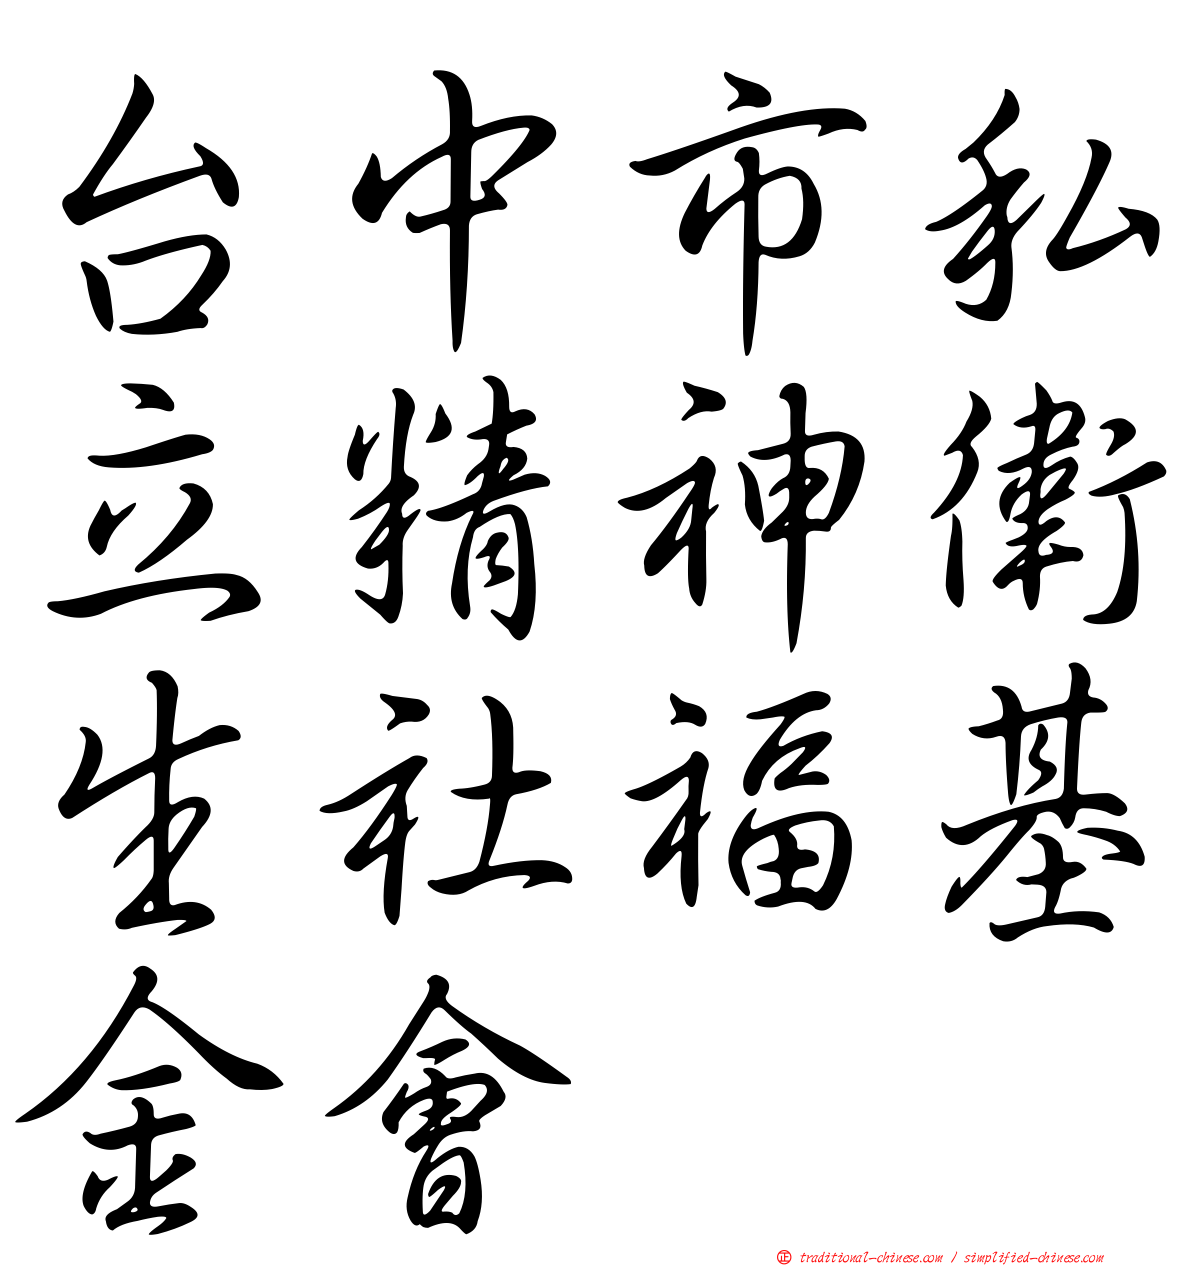 台中市私
立精神衛
生社福基
金會
正 traditional-chinese.com / simplified-chinese.com